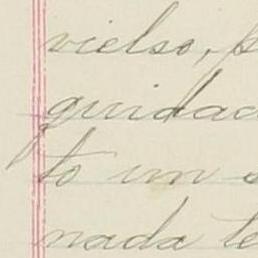 vielso, p
guidad
to un s
nada te